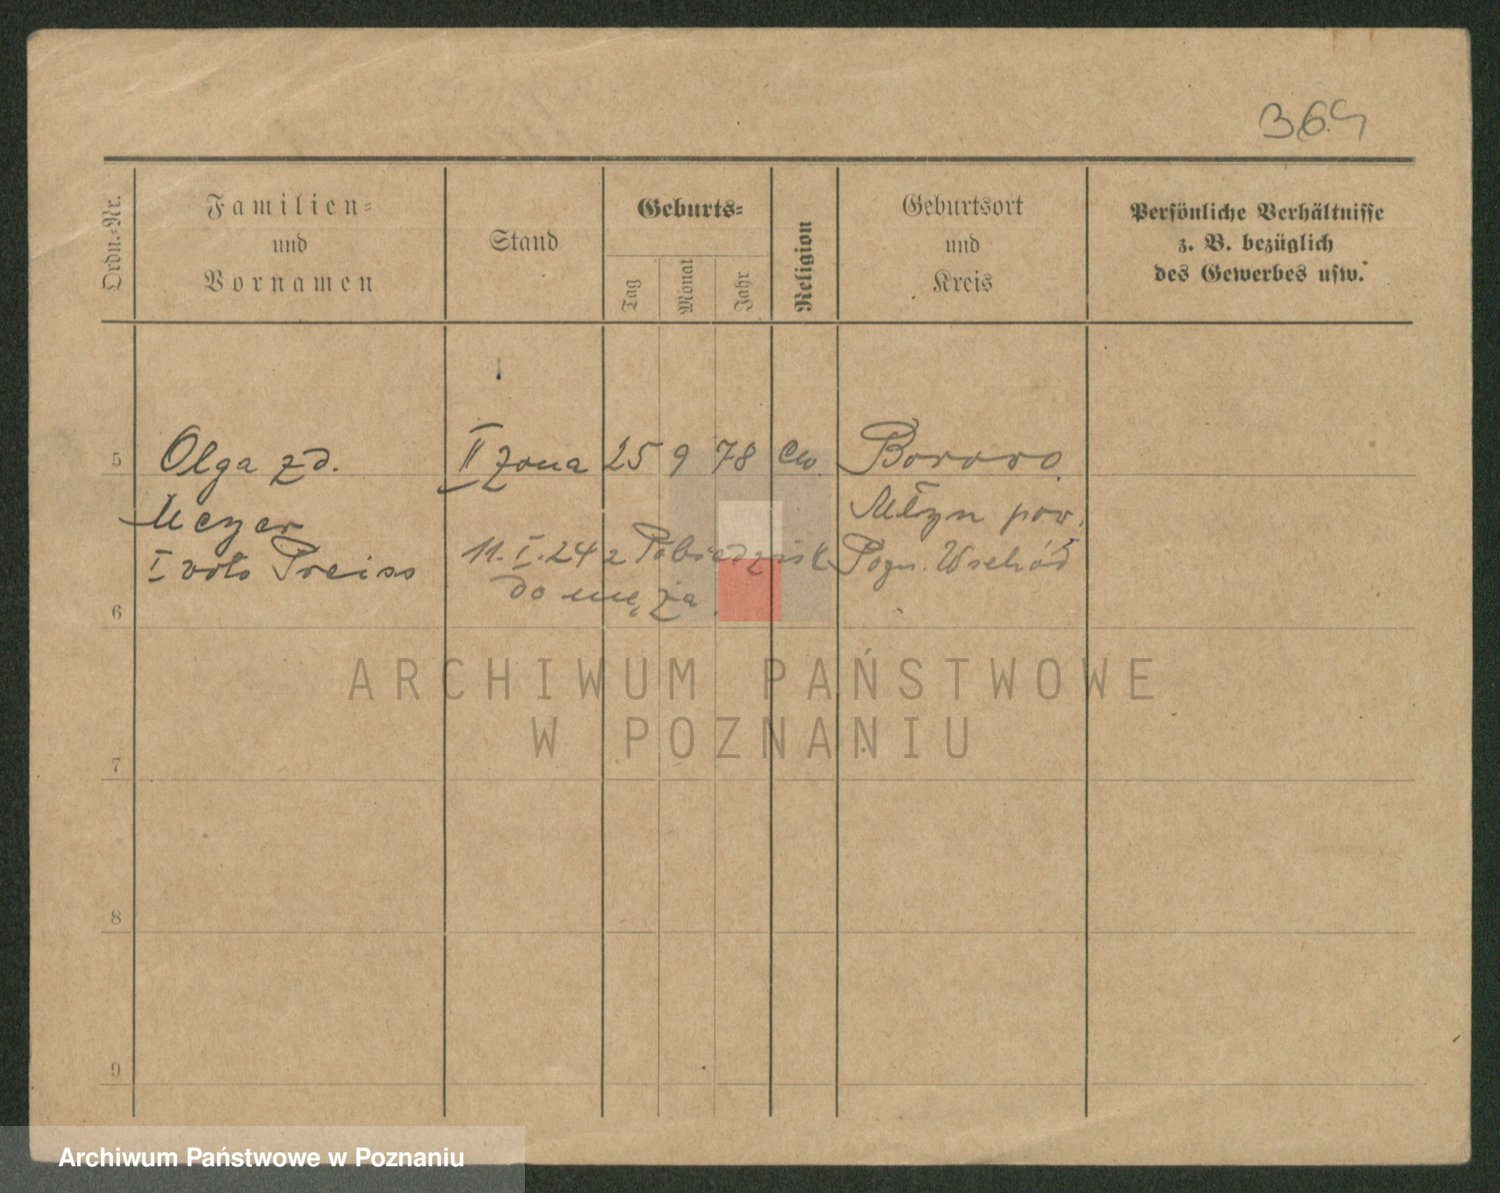 369
Ordn.-Nr.
Familien-
und
Vornamen
Stand
Geburts-
Tag
Monat
Jahr
Religion
Geburtsort
und
Kreis
Persönliche Verhältnisse
z. B. bezüglich
des Gewerbes usw.
5 Olga zd. II żona 25 9 78 ew. Bororo
Meyer Młyn pow.
I voto Preiss 11.I.24 z Pobiedzisk Pozn. Wschód
6 do męża.
ARCHIWUM PAŃSTWOWE
W POZNANIU
7
8
9
Archiwum Państwowe w Poznaniu